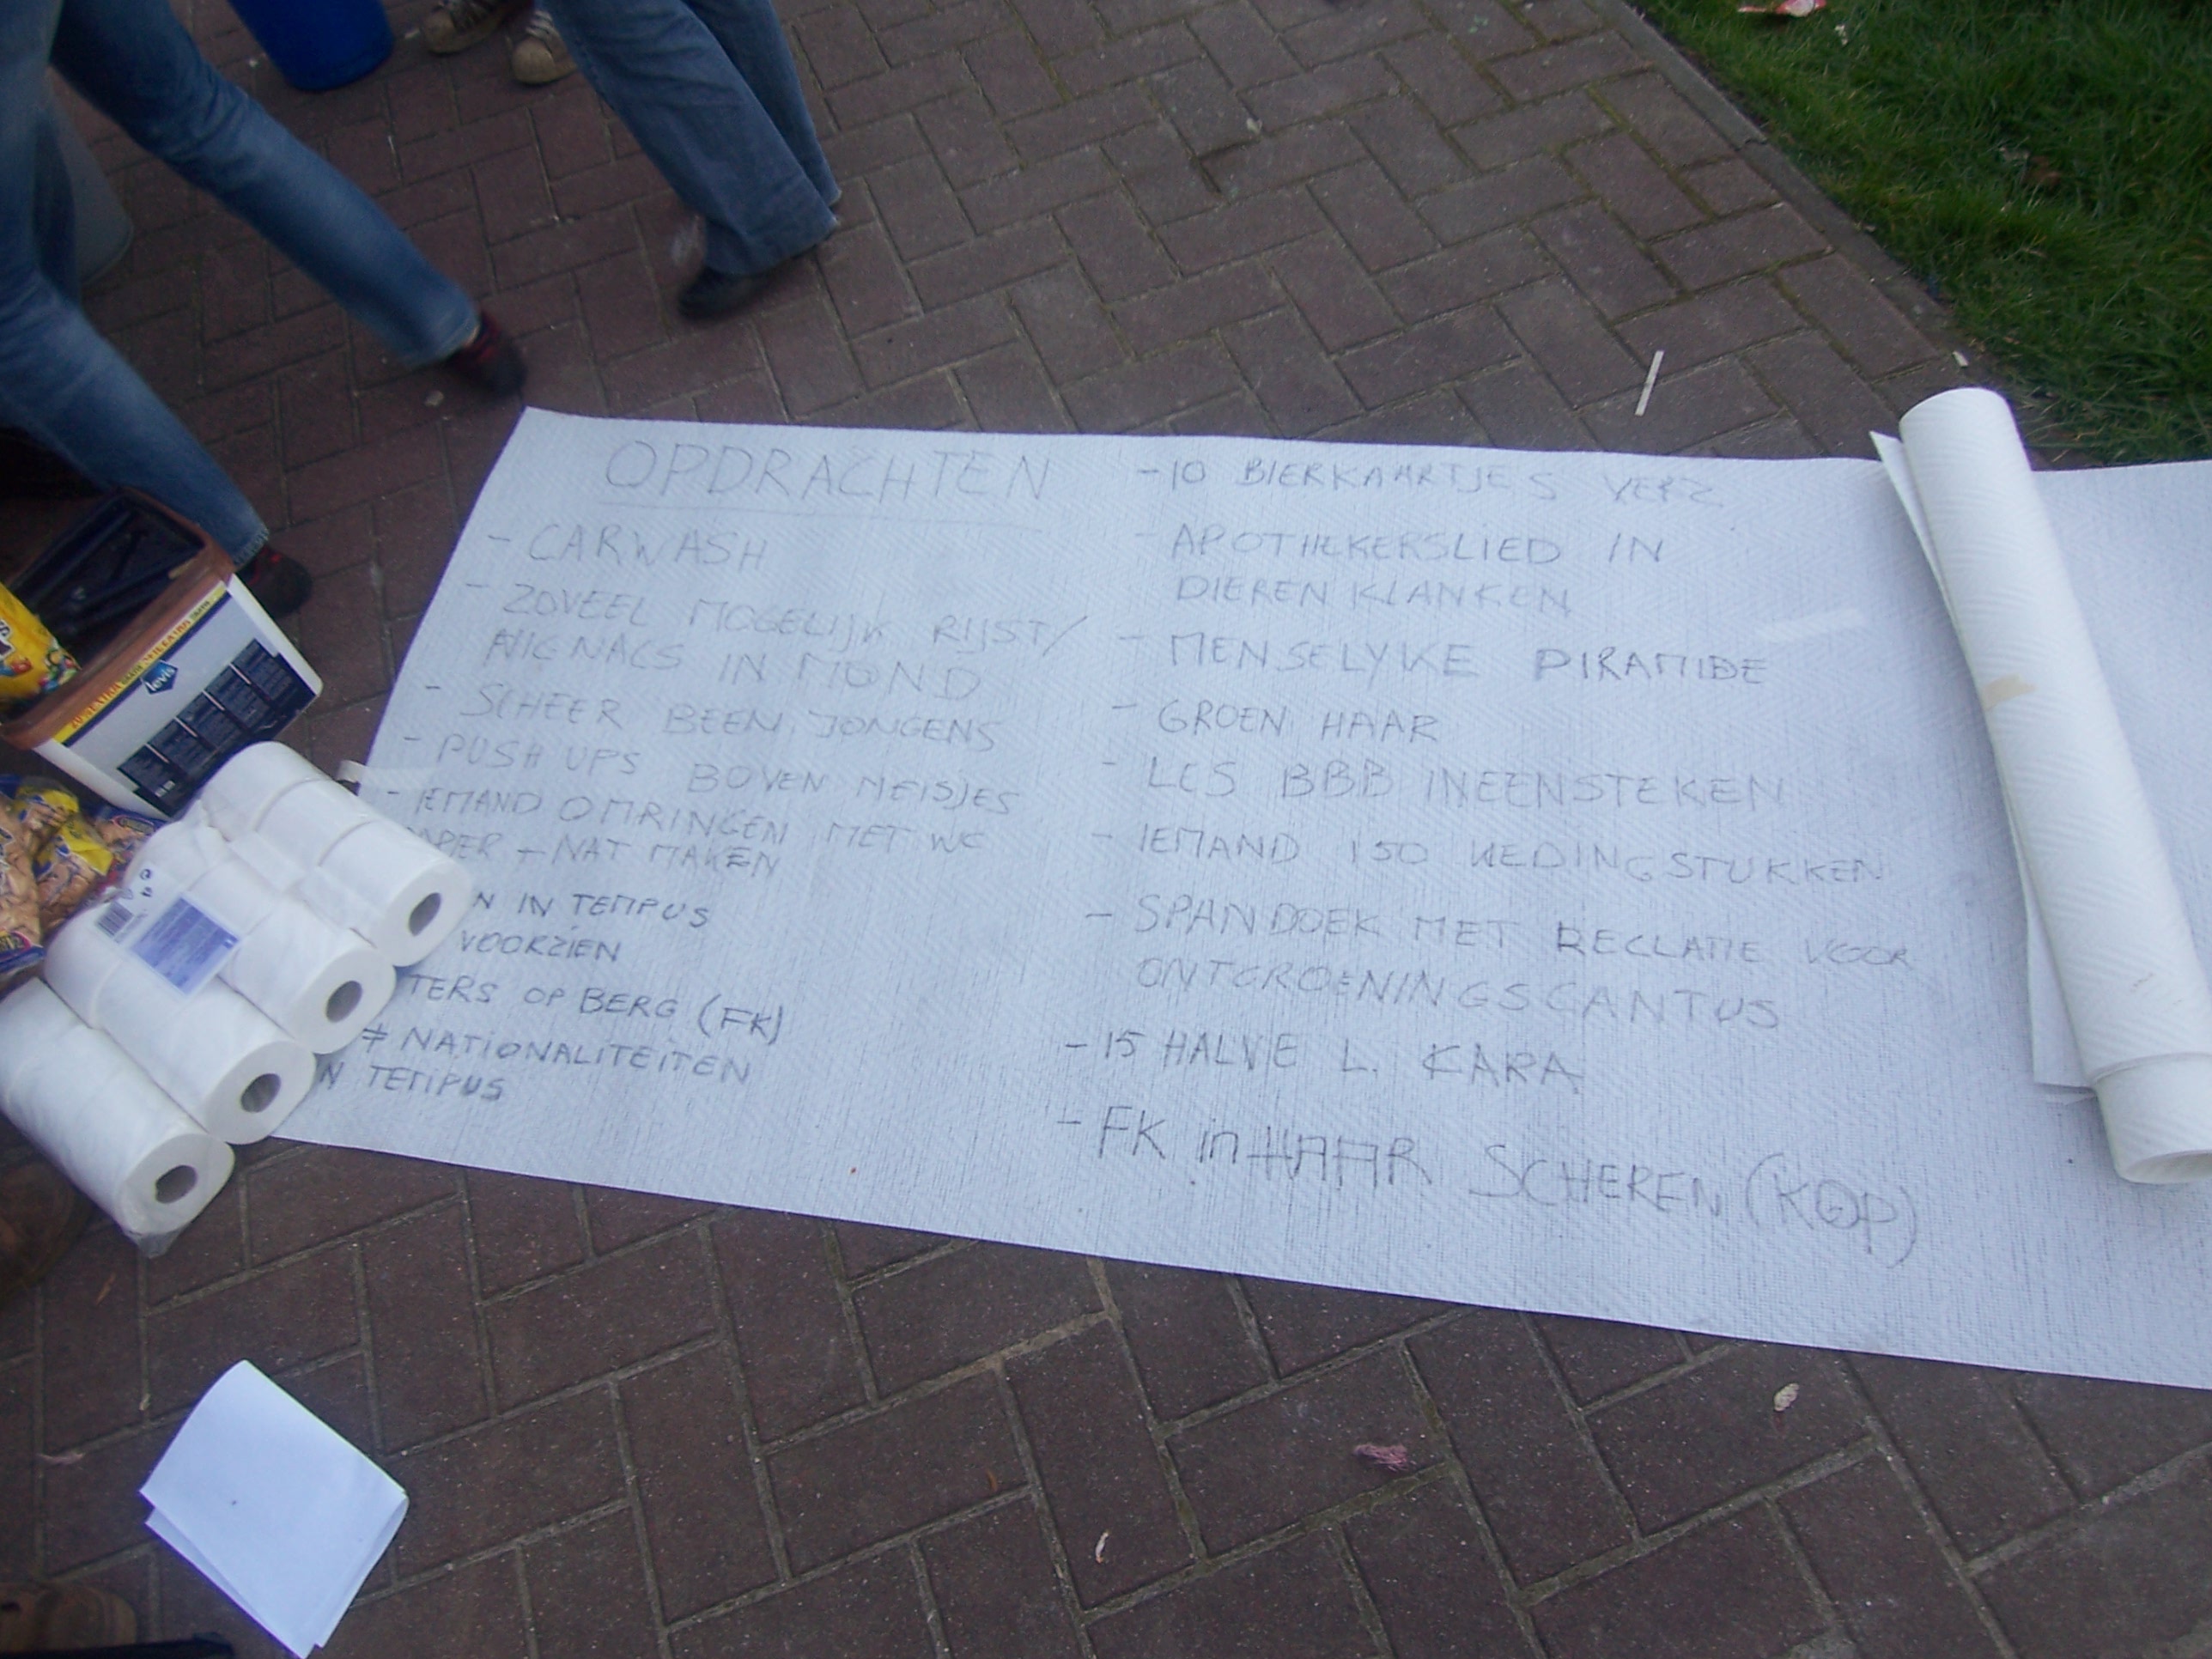 OPDRACHTEN
- CARWASH
- ZOVEEL MOGELIJK RIJST/
NICNACS IN MOND
- SCHEER BEEN JONGENS
- PUSH UPS BOVEN MEISJES
- IEMAND OMRINGEN MET WC
PER + NAT MAKEN
N IN TEMPUS
VOORZIEN
TERS OP BERG (FK)
≠ NATIONALITEITEN
N TEMPUS
- 10 BIERKAARTJES VERZ
- APOTHEKERSLIED IN
DIERENKLANKEN
- MENSELYKE PIRAMIDE
- GROEN HAAR
- LCS BBB INEENSTEKEN
- IEMAND 150 KLEDINGSTUKKEN
- SPANDOEK MET RECLAME VOOR
ONTGROENINGSCANTUS
- 15 HALVE L. CARA
- FK in HAAR SCHEREN (KOP)
levis